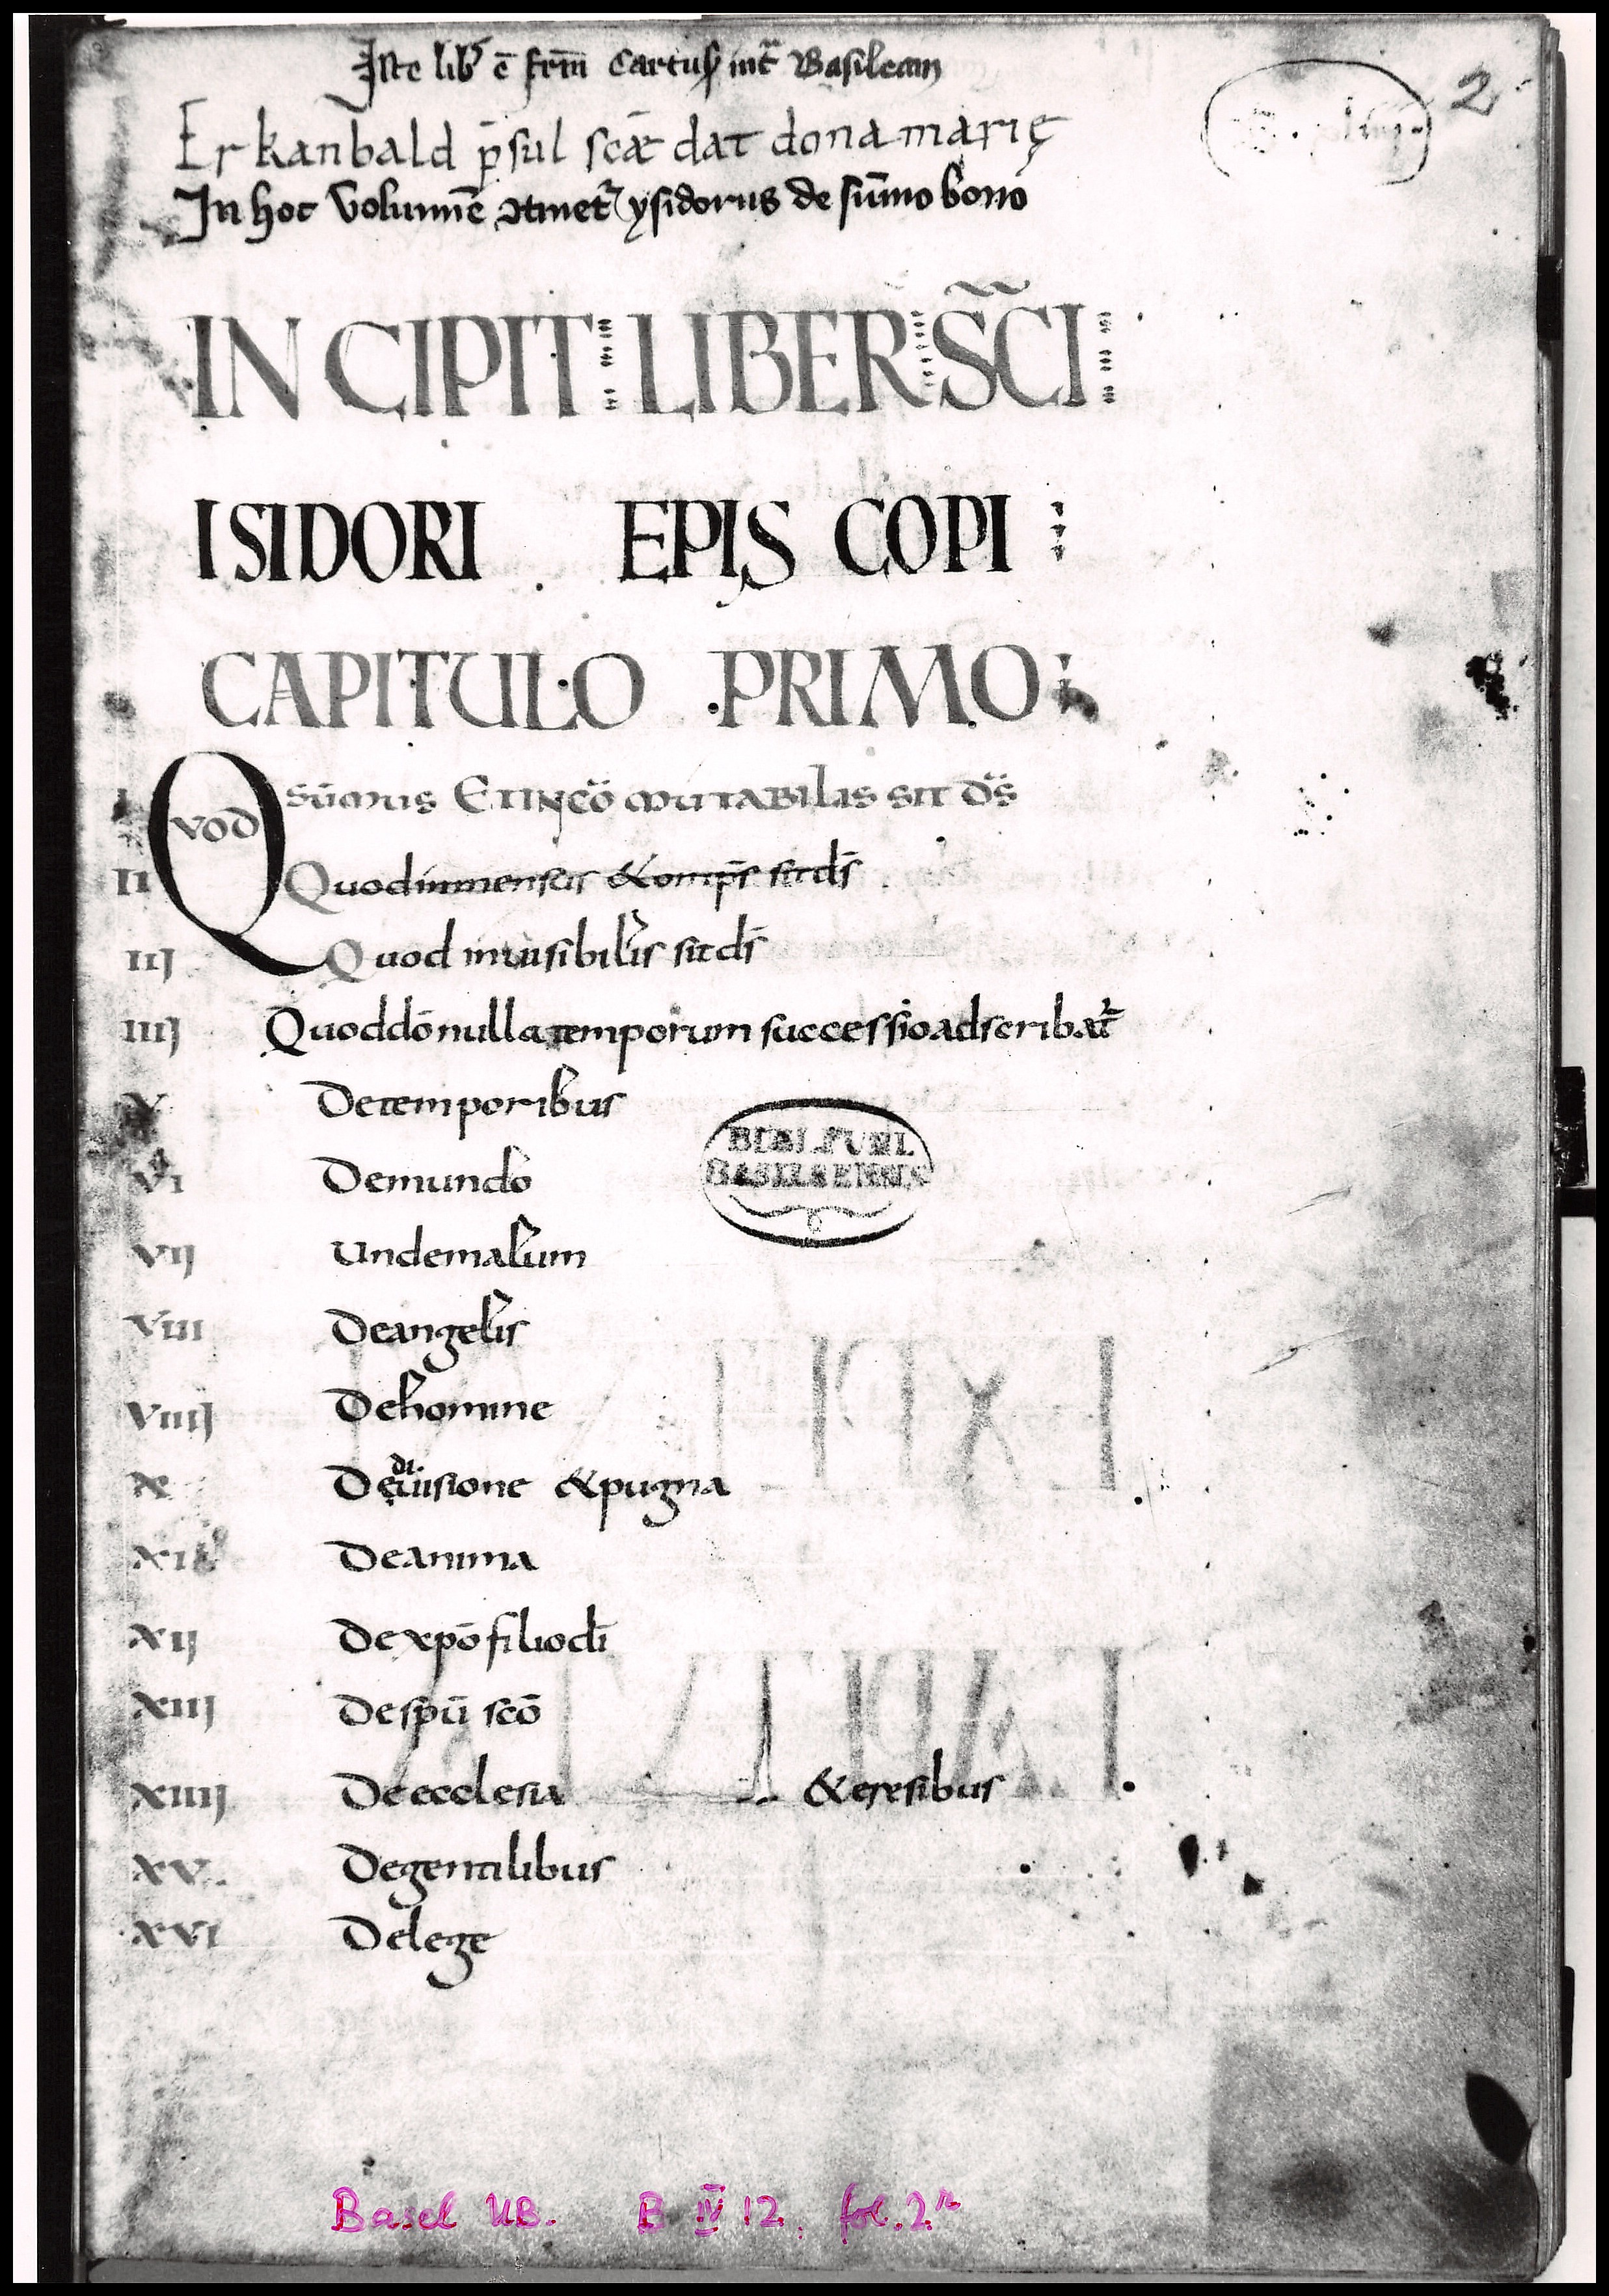 Iste lib̄ ē frm̄ Cartuſ int̄ Basileam
2
Erkanbald p̄sul scǣ dat dona marię
In hoc Volumīe ꝯtinet᷑ ysidorus de sūmo bono
INCIPIT LIBER SC̄I
ISIDORI EPISCOPI
CAPITULO PRIMO
I Quod sūmus et incō mutabilis sit ds̄
II Quod immensus & omp̄s sit ds̄
IIJ Quod inuisibilis sit ds̄
IIIJ Quod dō nulla temporum successio adscribat᷑
V De temporibus
VI De mundo
VIJ Unde malum
VIII De angelis
VIIIJ De homine
di.
X De uisione & pugna
XI De anima
XIJ De xpō filio dī
XIIJ De spū scō
XIIIJ De ecclesia & eresibus
XV De gentilibus
XVI De lege
BIBL. PUBL.
BASILEENSIS
Basel UB. B IV 12, fol. 2r